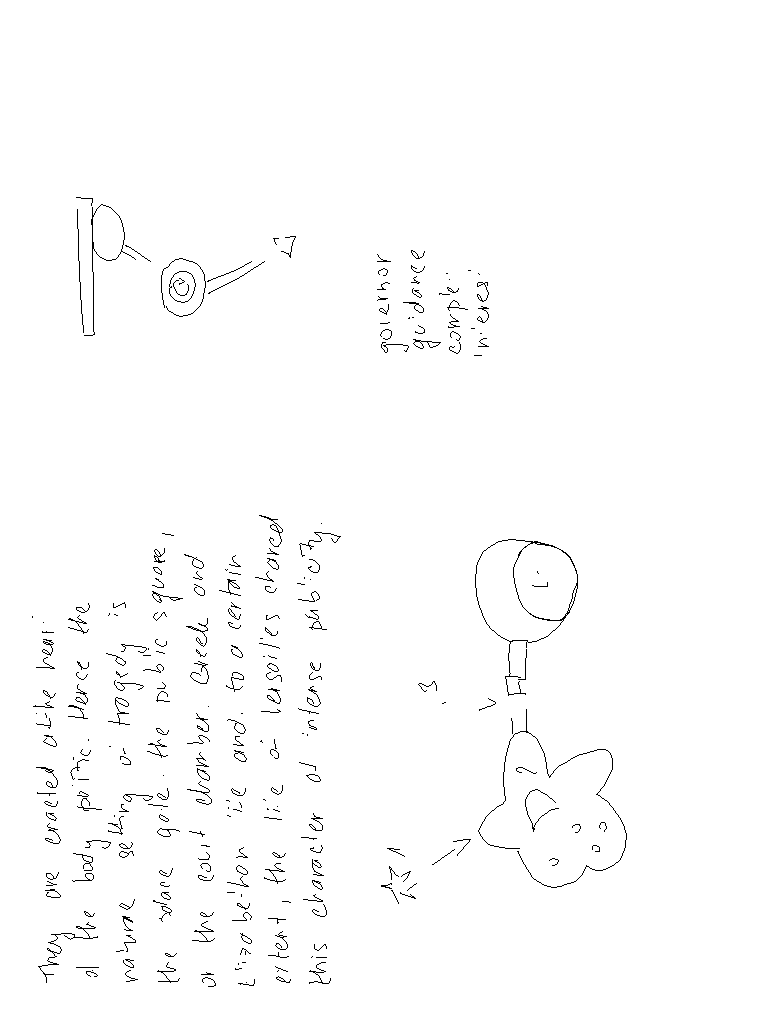 They are enacted at the heart
of the body politic. Hence the
natural setting of tragedy is
the palace gate, the public square,
or the court chamber. Greek and
Elizabethan life and, to a certain
extent, the life of Versailles shared
this character of intense publicity.
governor
guidance
comple
interest
1
2
3